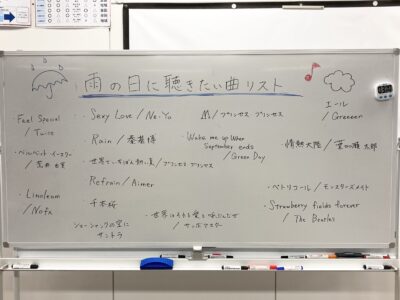 雨の日に聴きたい曲リスト
・Feel Special
/ Twice
・ベルベット・イースター
/ 荒井 由実
・Linoleum
/ Nofx
・Sexy Love / Ne-Yo
・Rain / 秦 基博
・世界でいちばん熱い夏 / プリンセス プリンセス
・Refrain / Aimer
・千本桜
ショーシャンクの空に
サントラ
M / プリンセス プリンセス
・Wake me up when
September ends
/ Green Day
・世界はそれを愛と呼ぶんだぜ
/ サンボマスター
エール
/ Greeeen
・情熱大陸 / 葉加瀬 太郎
・ペトリコール / モンスターズメイト
・Strawberry fields forever
/ The Beatles